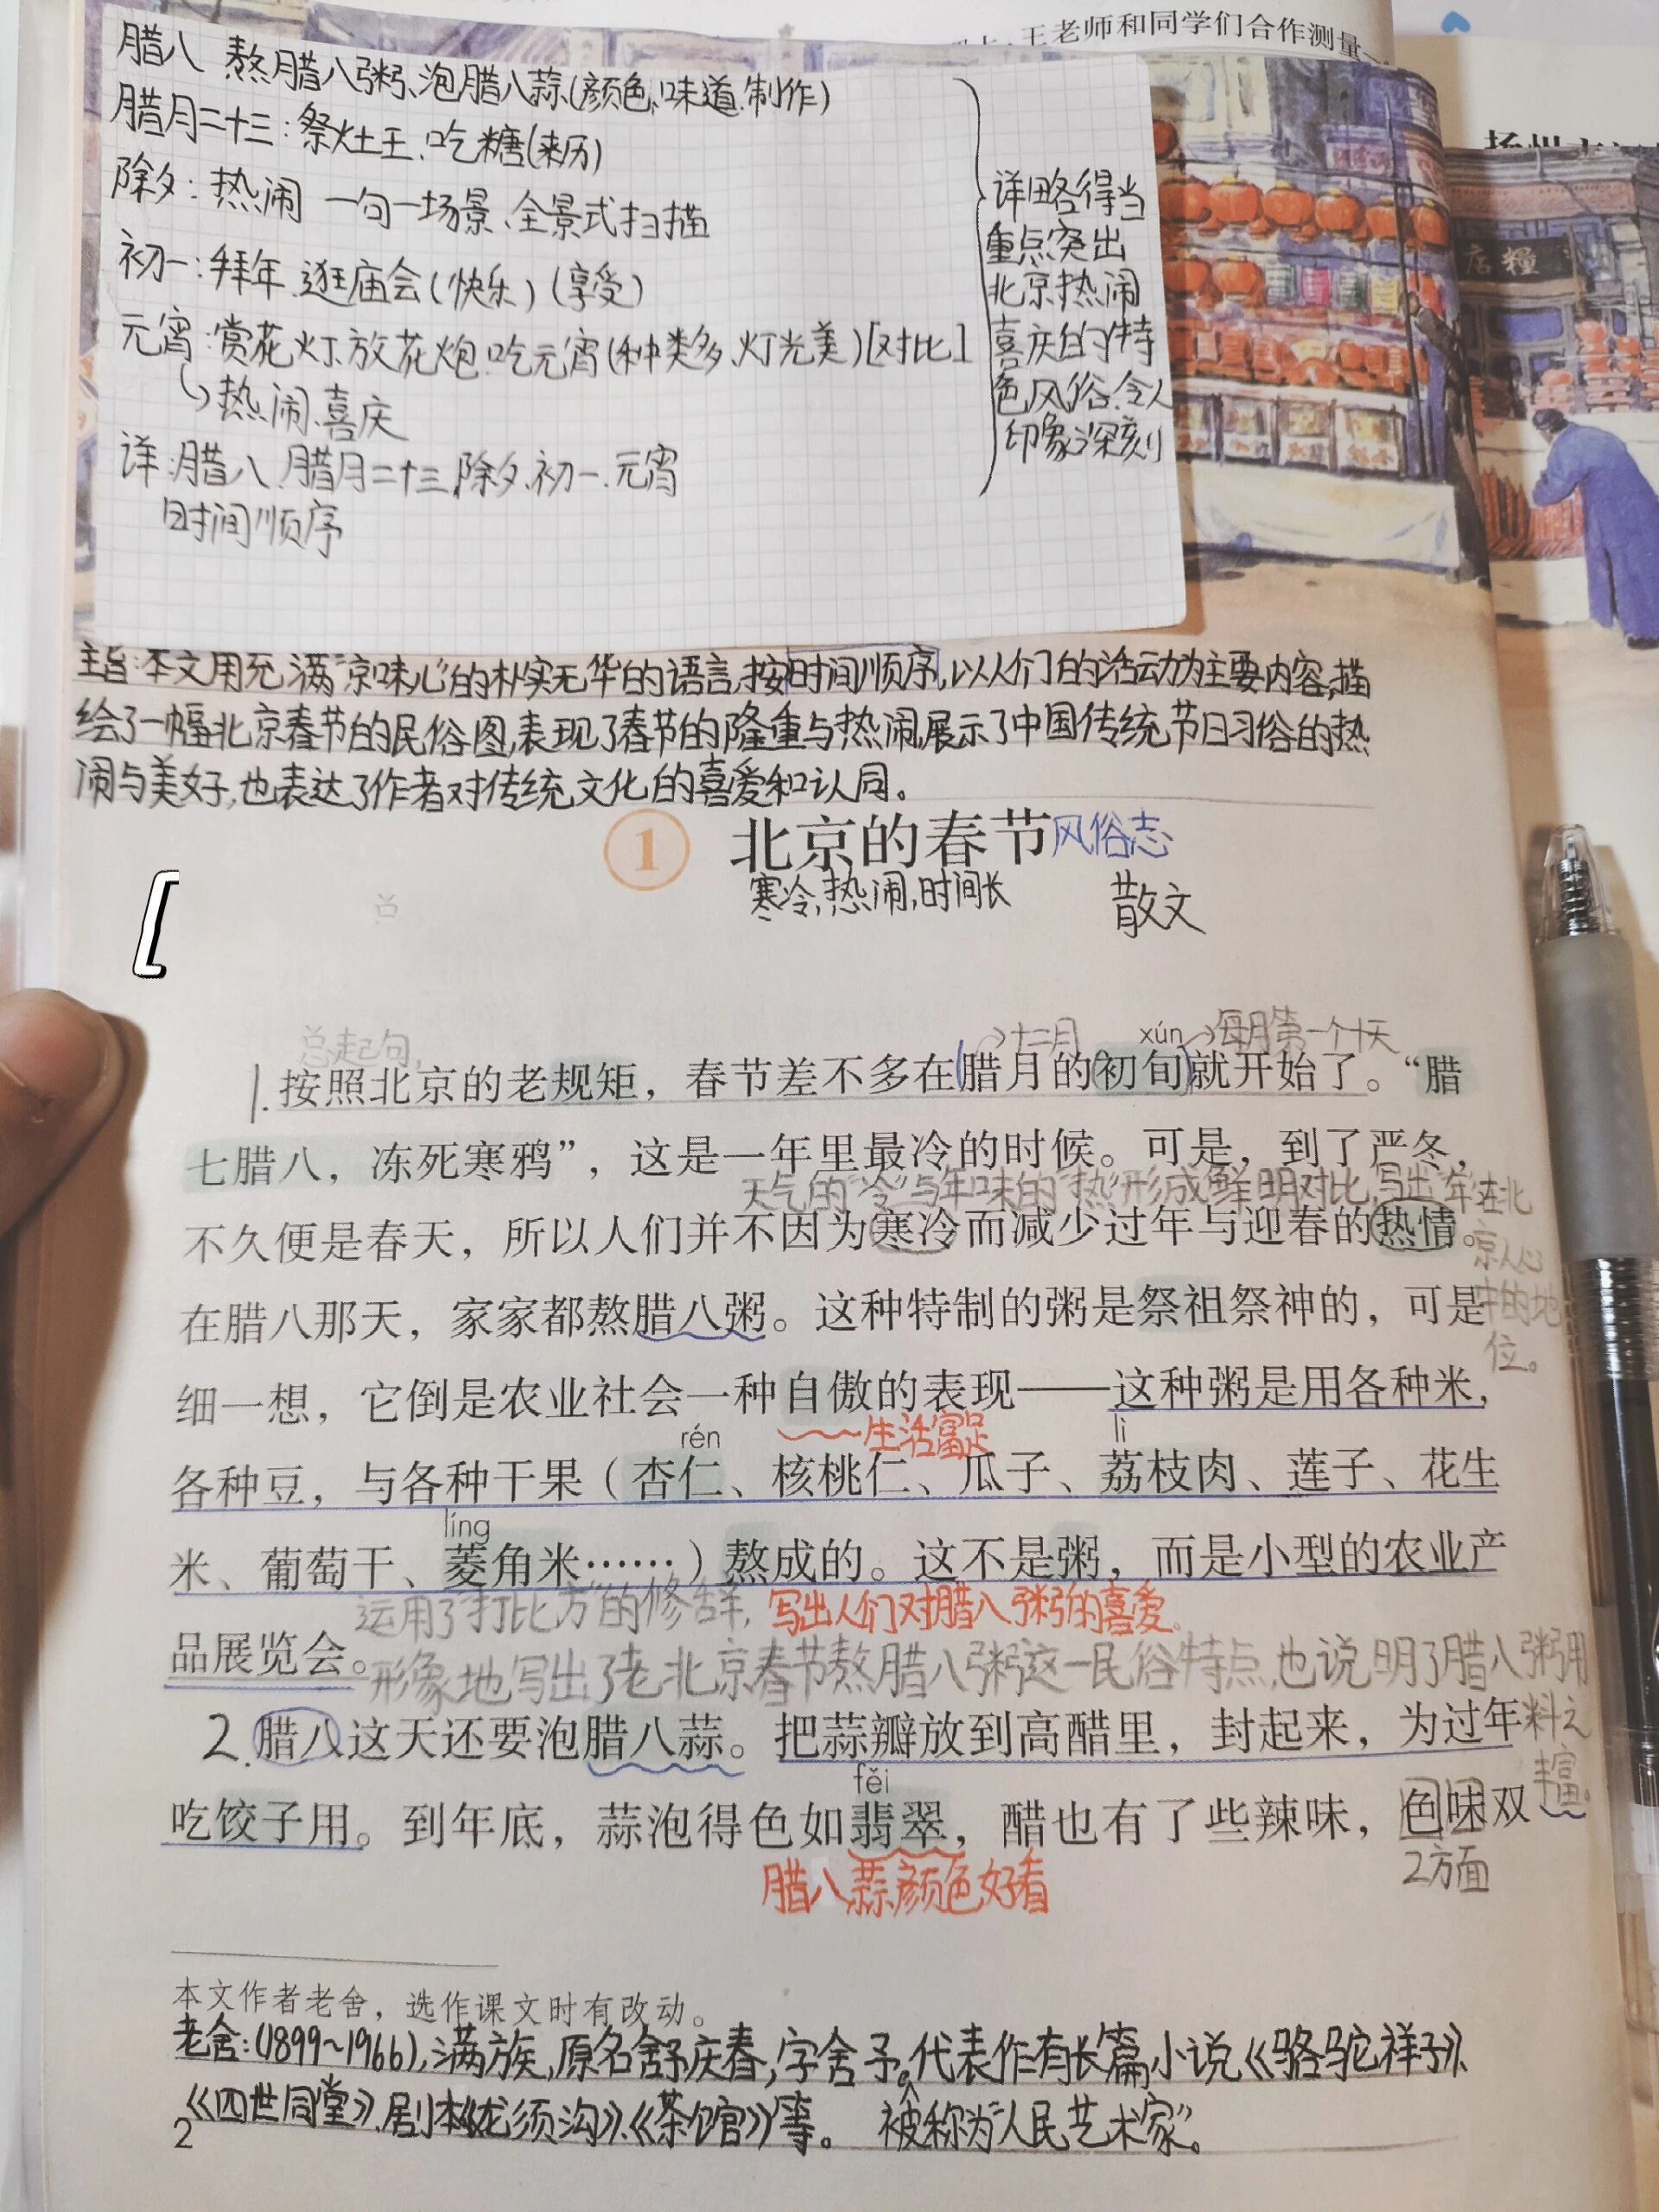 王老师和同学们合作测量
腊八 熬腊八粥、泡腊八蒜(颜色、味道、制作)
腊月二十三：祭灶王、吃糖(来历)
除夕：热闹 一句一场景、全景式扫描
初一：拜年、逛庙会(快乐)(享受)
元宵：赏花灯、放花炮、吃元宵(种类多、灯光美)[对比]
热闹、喜庆
详：腊八、腊月二十三、除夕、初一、元宵
时间顺序
详略得当
重点突出
北京热闹
喜庆的特
色风俗、令人
印象深刻
店糧
主旨：本文用充满“京味儿”的朴实无华的语言，按时间顺序，以人们的活动为主要内容，描
绘了一幅北京春节的民俗图，表现了春节的隆重与热闹，展示了中国传统节日习俗的热
闹与美好，也表达了作者对传统文化的喜爱和认同。
1 北京的春节 风俗志
寒冷，热闹，时间长 散文
总起句，
→十二月 xún→每月第一个十天
1.按照北京的老规矩，春节差不多在腊月的初旬就开始了。“腊
七腊八，冻死寒鸦”，这是一年里最冷的时候。可是，到了严冬，
天气的“冷”与年味的“热”形成鲜明对比，写出“年”在北
不久便是春天，所以人们并不因为寒冷而减少过年与迎春的热情。
京人心
在腊八那天，家家都熬腊八粥。这种特制的粥是祭祖祭神的，可是
中的地
位。
细一想，它倒是农业社会一种自傲的表现——这种粥是用各种米，
生活富足
rén lì
各种豆，与各种干果（杏仁、核桃仁、瓜子、荔枝肉、莲子、花生
líng
米、葡萄干、菱角米……）熬成的。这不是粥，而是小型的农业产
运用了“打比方”的修辞，写出人们对腊八粥的喜爱。
品展览会。
形象地写出了老北京春节熬腊八粥这一民俗特点，也说明了腊八粥用
料之
丰富。
2.腊八这天还要泡腊八蒜。把蒜瓣放到高醋里，封起来，为过年
fěi
吃饺子用。到年底，蒜泡得色如翡翠，醋也有了些辣味，色味双
腊八蒜颜色好看
2方面
本文作者老舍，选作课文时有改动。
老舍：(1899~1966)，满族，原名舒庆春，字舍予。代表作有长篇小说《骆驼祥子》、
《四世同堂》、剧本《龙须沟》、《茶馆》等。 被称为“人民艺术家”。
2